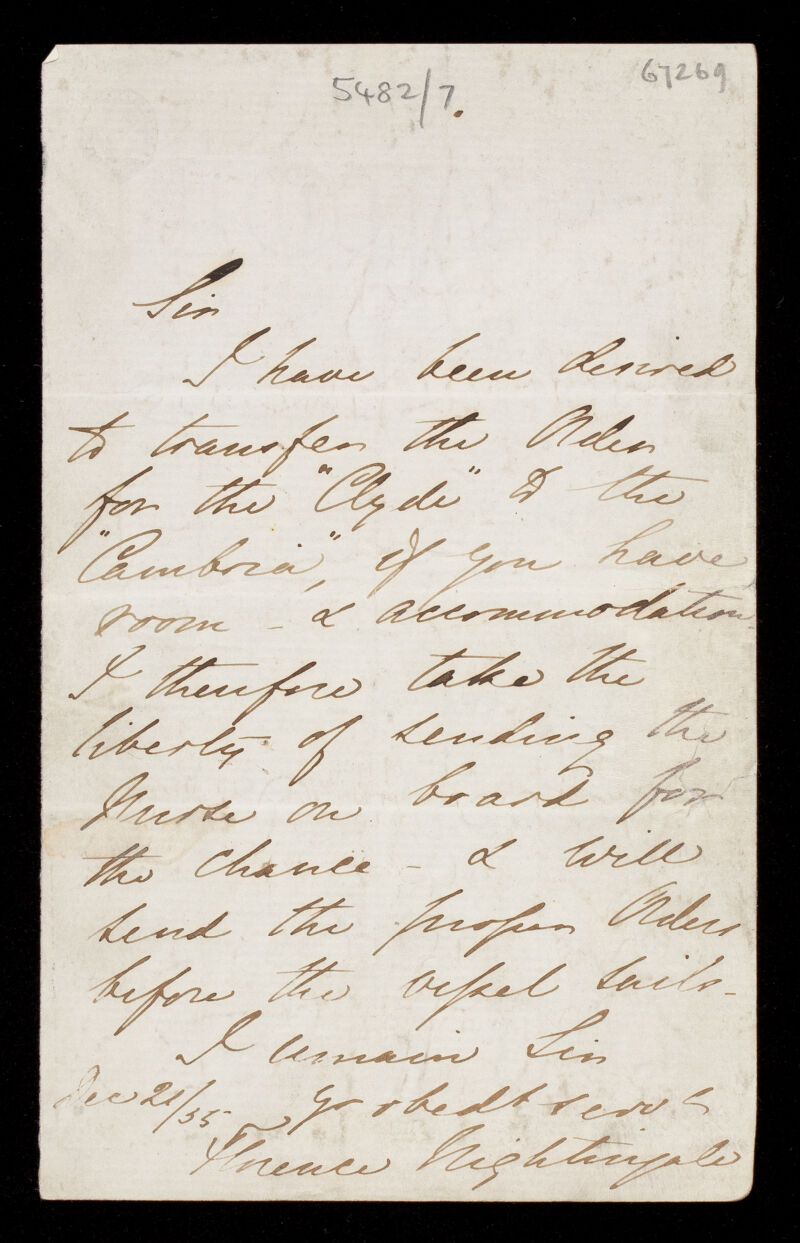 5482/7.
67269
Sir
I have been desired
to transfer the Order
for the "Clyde" to the
"Cambria", if you have
room - & accommodation.
I therefore take the
liberty of sending the
Nurse on board for
the chance - & will
send the proper Orders
before the vessel sails -
I remain Sir
Dec 21/55 yr obedt servt
Florence Nightingale